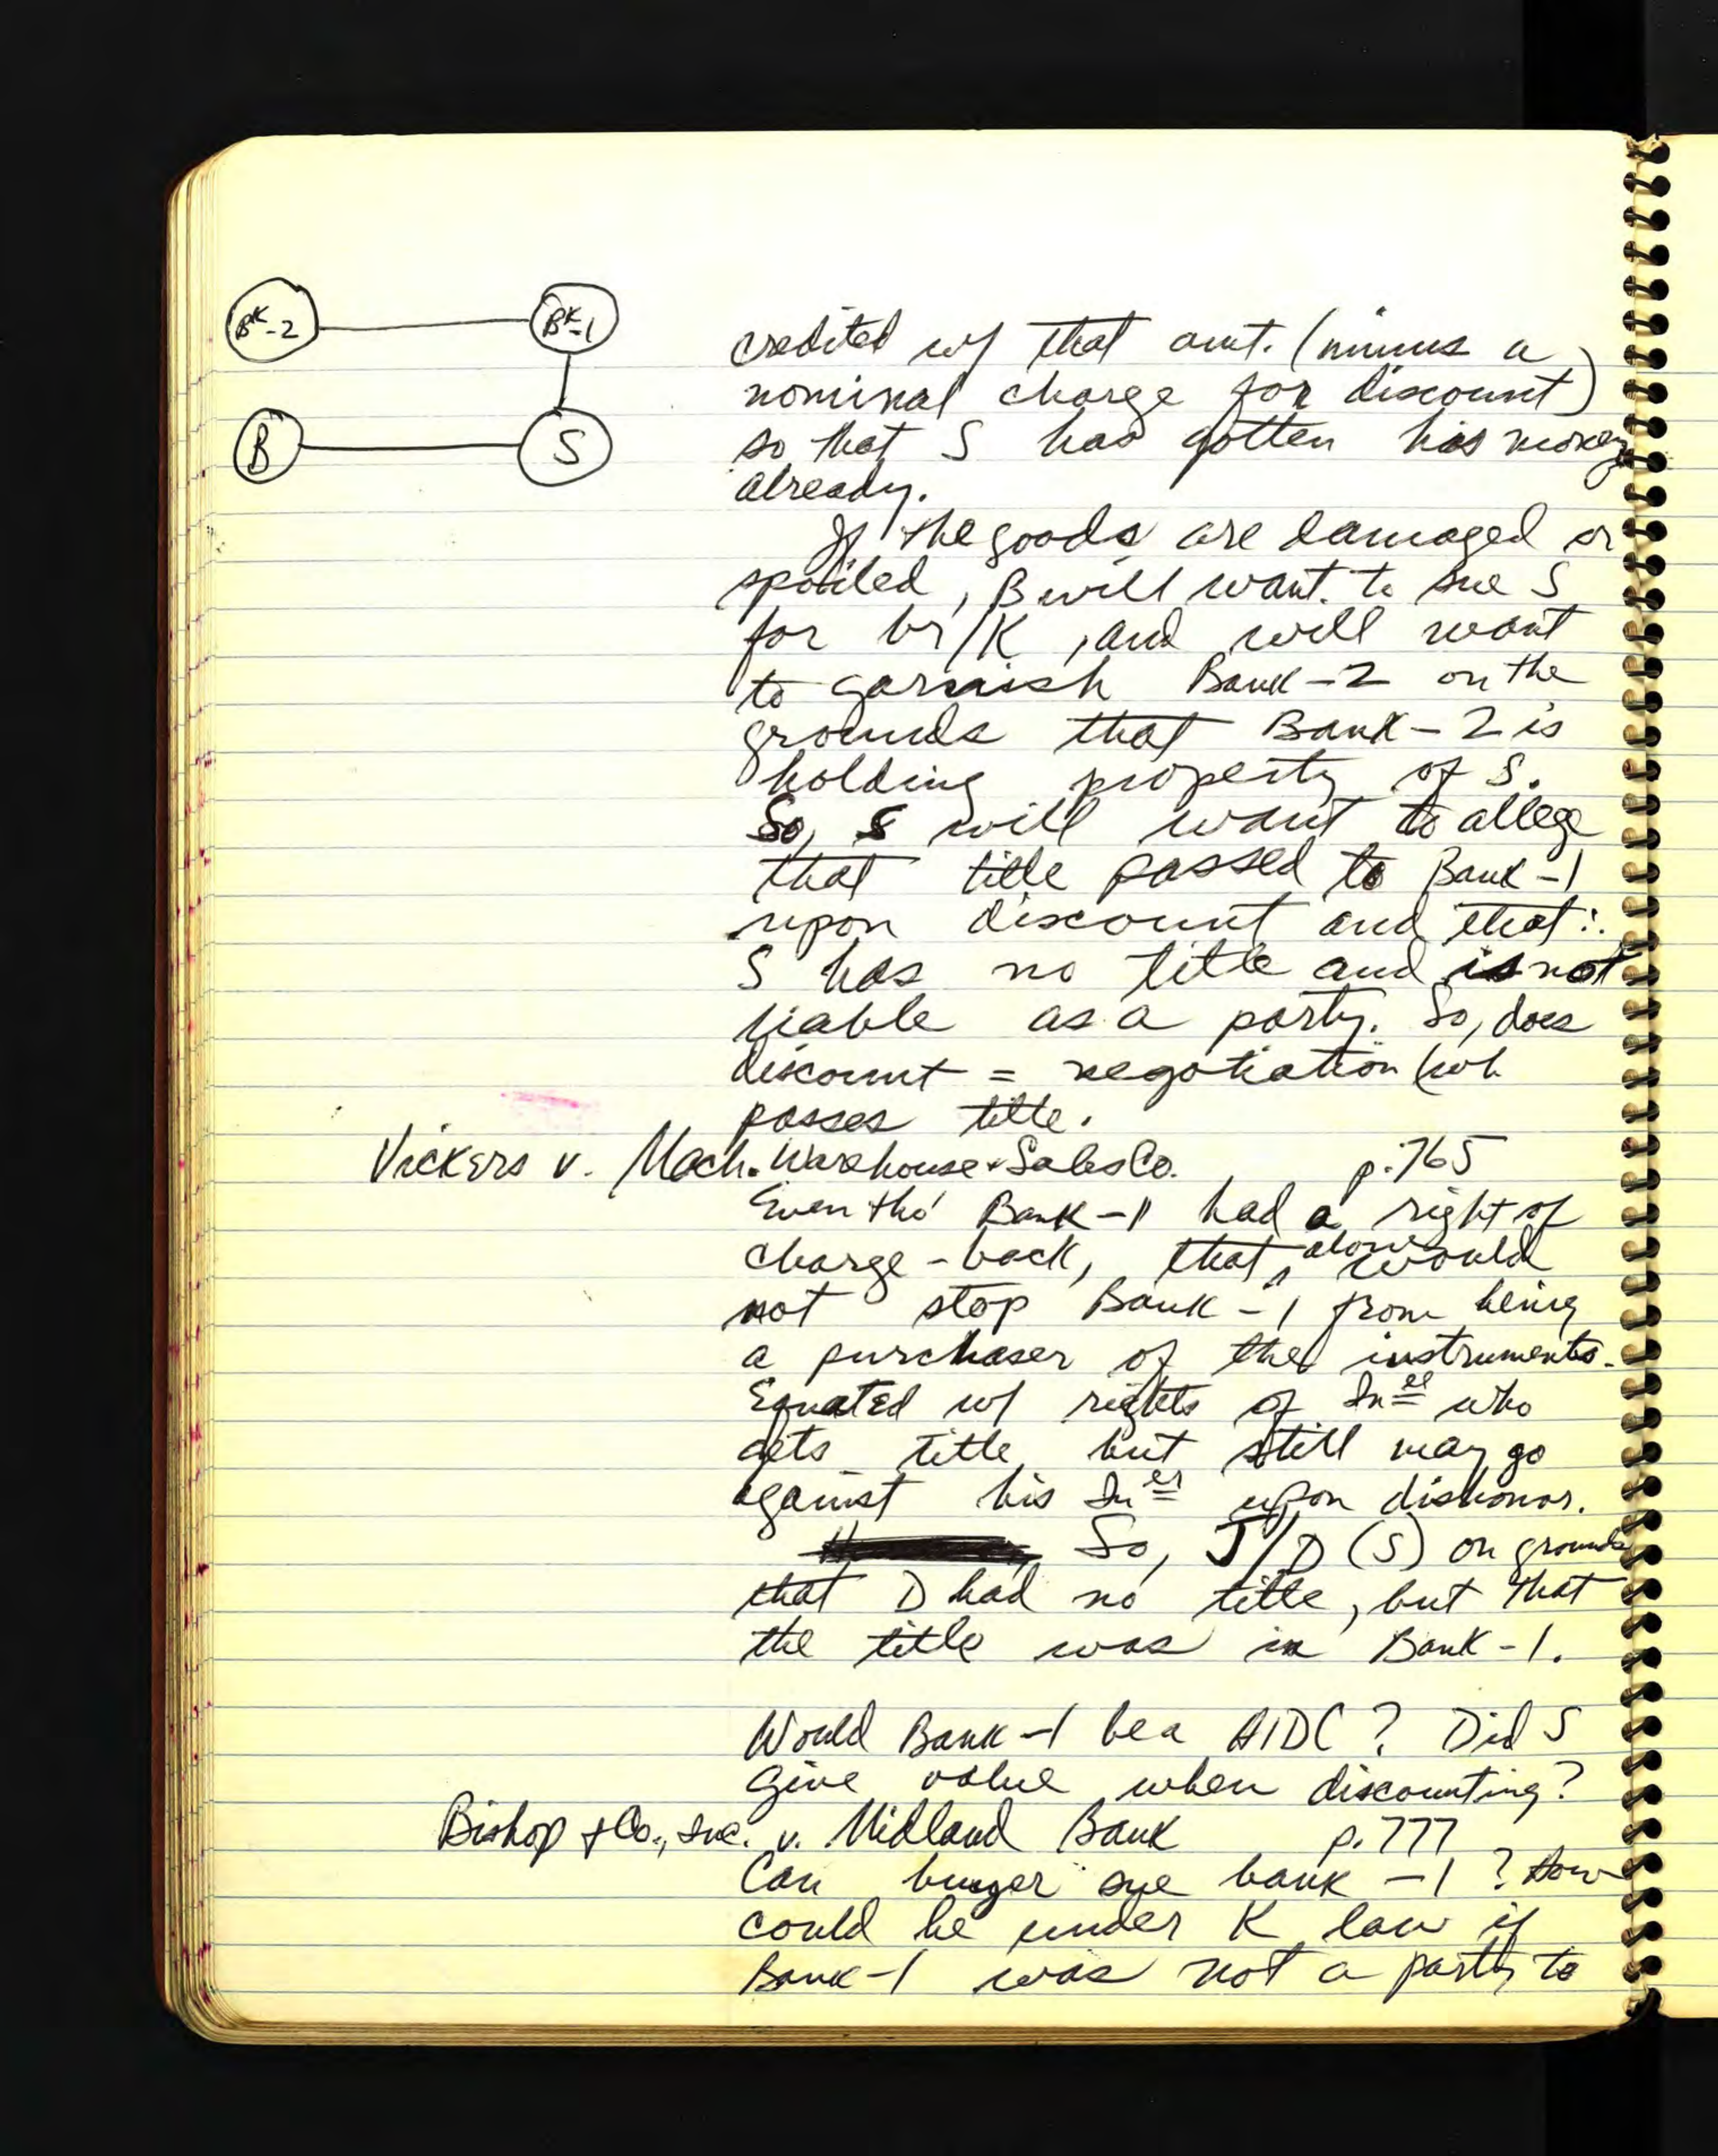 BK-2
BK-1
B
S
credited w/ that amt. (minus a
nominal charge for discount)
so that S has gotten his money
already.
If the goods are damaged or
spoiled, B will want to sue S
for br/K, and will want
to garnish Bank-2 on the
grounds that Bank-2 is
holding property of S.
So, S will want to allege
that title passed to Bank-1
upon discount and that ∴
S has no title and is not
liable as a party. So, does
discount = negotiation (wh
passes title.
Vickers v. Mach. Warehouse & Sales Co. p. 765
Even tho' Bank-1 had a right of
charge-back, that alone would
not stop Bank-1 from being
a purchaser of the instruments.
Equated w/ rights of In ee who
gets title but still may go
against his In er upon dishonor.
So, J/D (S) on grounds
that D had no title, but that
the title was in Bank-1.
Would Bank-1 be a HDC? Did S
give value when discounting?
Bishop & Co., Inc. v. Midland Bank p. 777
Can buyer sue bank-1? How
could he under K law if
Bank-1 was not a party to